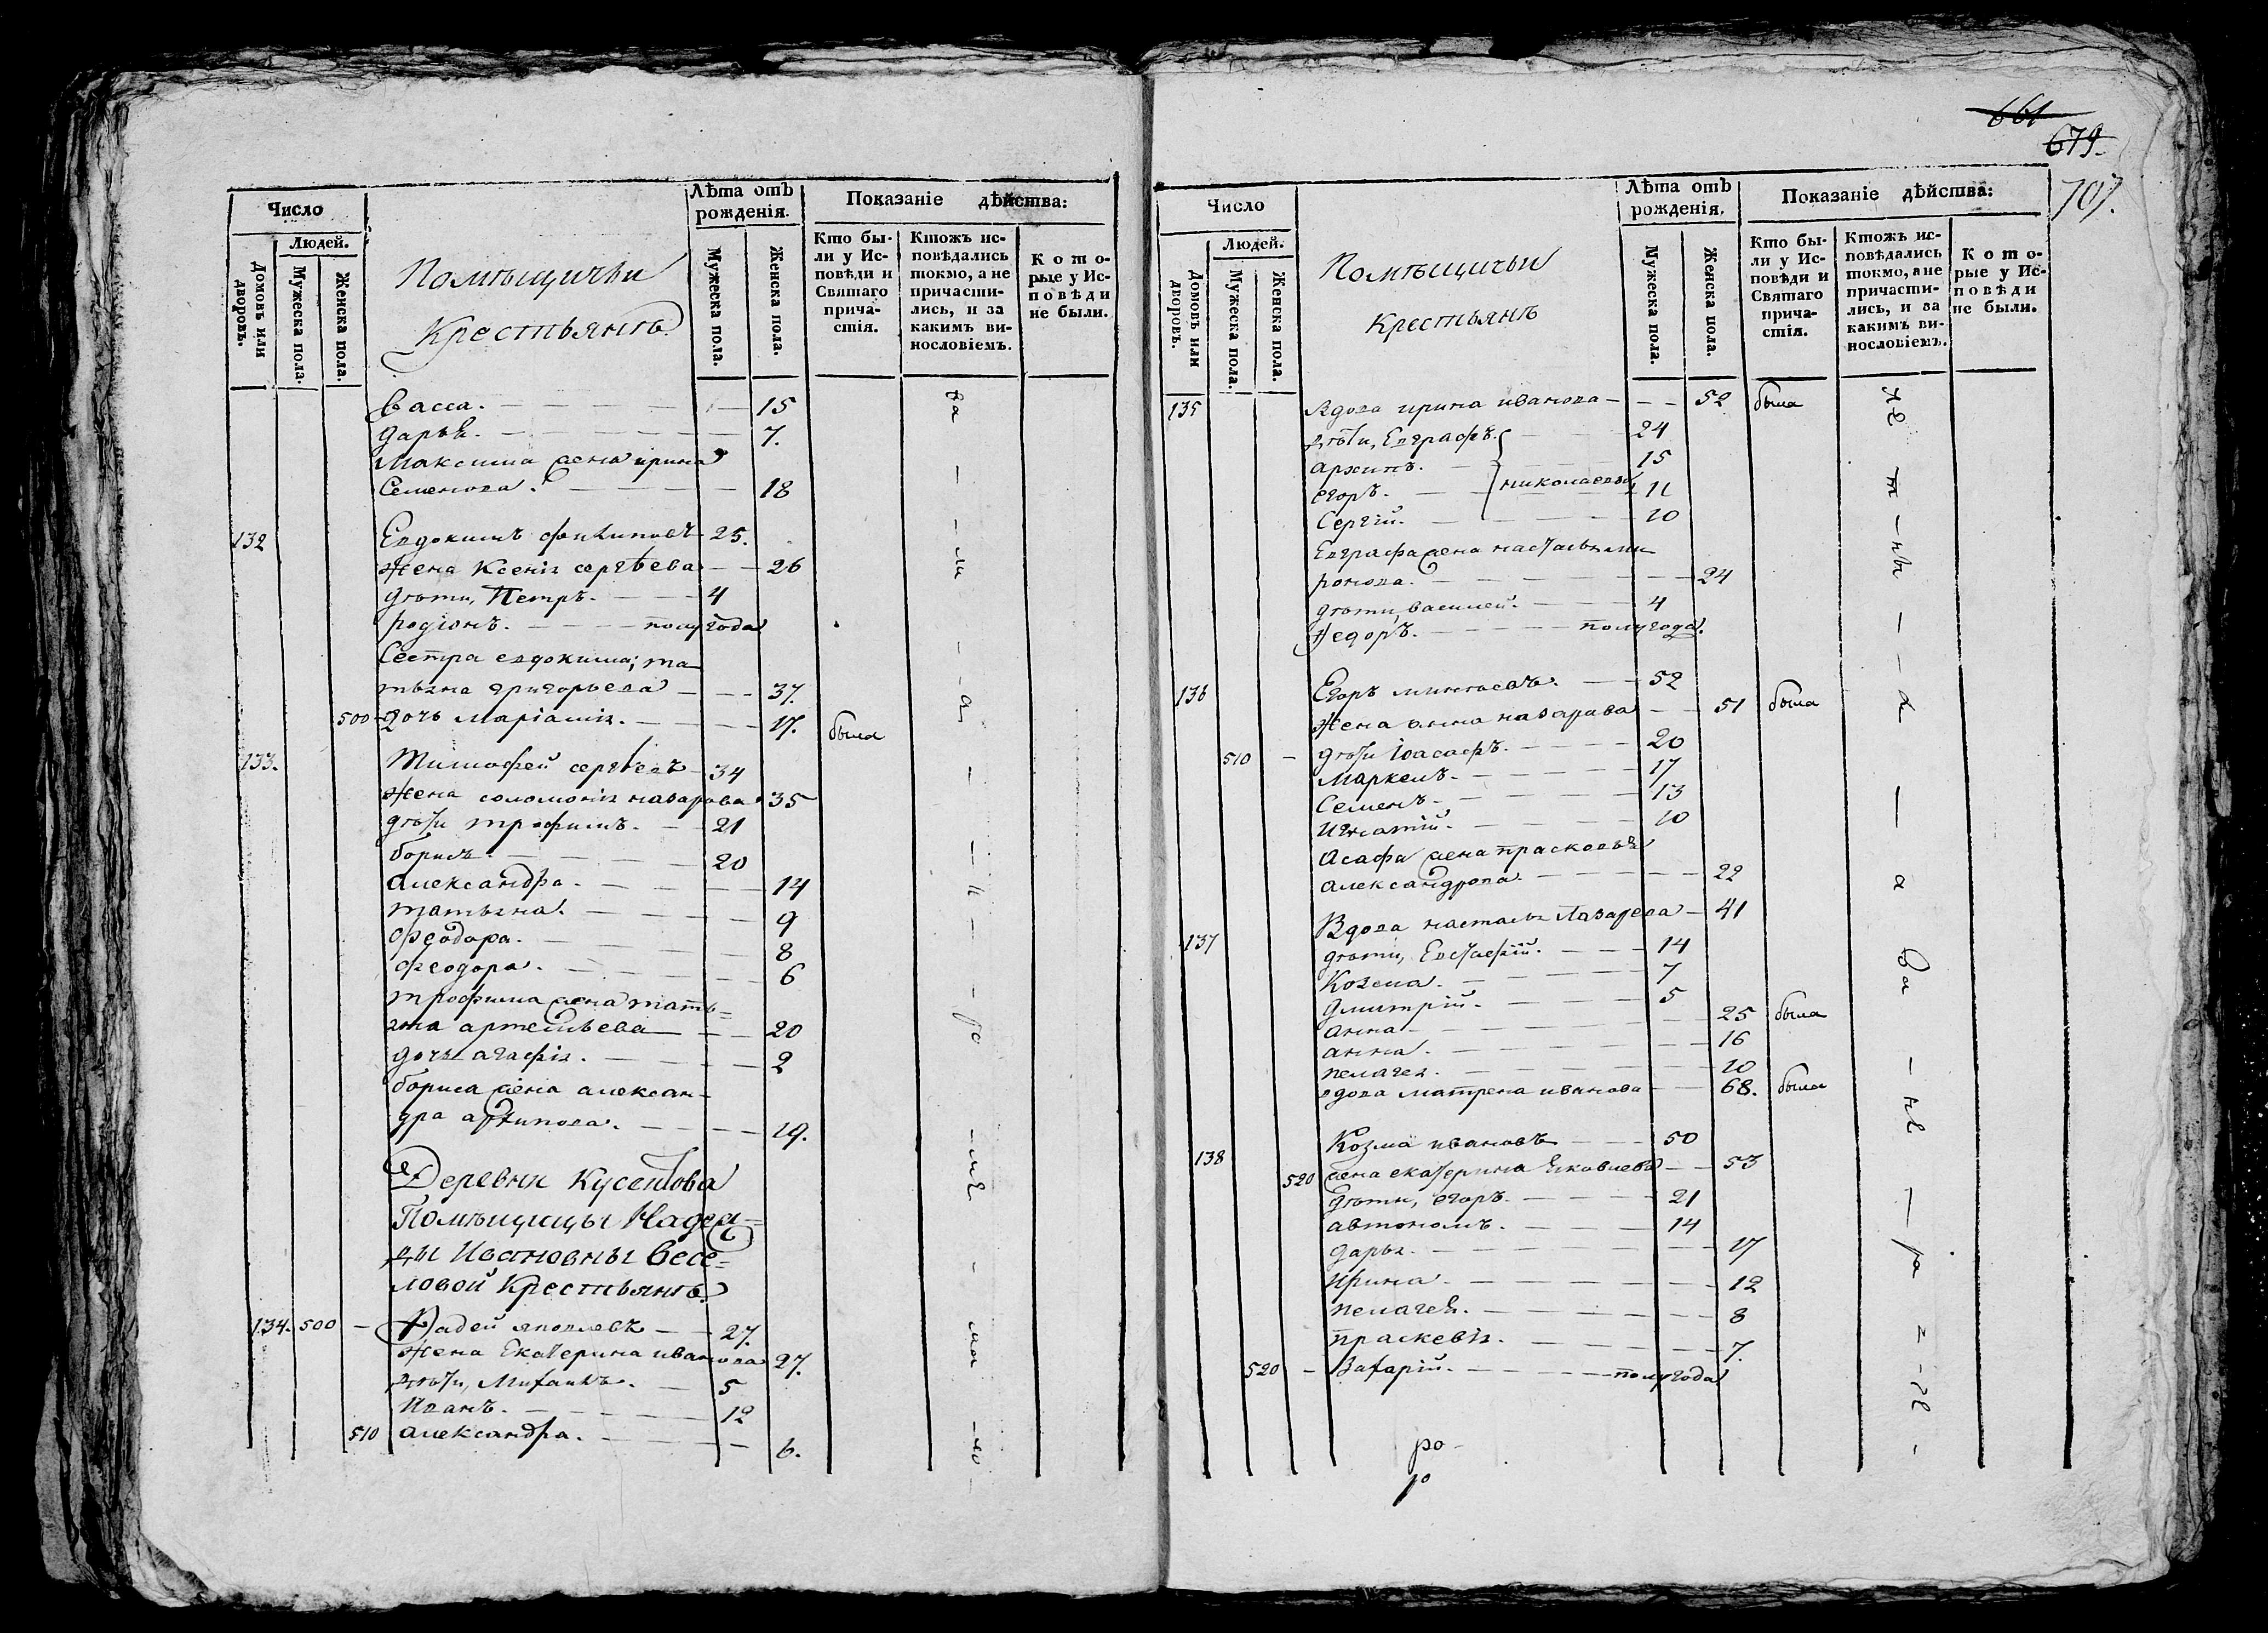 661
679.
707.
Число
Лѣта отъ рожденія.
Показаніе дѣйства:
Людей.
Домовъ или дворовъ.
Мужеска пола.
Женска пола.
Помѣщичьи
Крестьянъ
Мужеска пола.
Женска пола.
Кто были у Исповѣди и Святаго причастія.
Ктожъ исповѣдались токмо, а не причастились, и за какимъ винословіемъ.
Которые у Исповѣди не были.
васса. 15
дарья. 7.
Максима жена ирина
Семенова. 18
132 Евдокимъ филиповъ 25.
жена Ксенія сергѣева 26
дѣти, Петръ. 4
родіонъ. полугода
Сестра евдокима; та
тьяна григорьева 37.
500 дочь маріамія. 17. была
133. Тимофей сергѣевъ 34
жена соломонія назарова 35
дѣти трофимъ. 21
борисъ. 20
александра. 14
татьяна. 9
феодора. 8
феодора. 6
трофима жена тать=
яна артемьева 20
дочь агафія. 2
бориса жена алексан=
дра архипова. 19.
Деревни Кусентова
Помѣщицы Надеж=
ды Ивановны Весе=
ловой Крестьянъ.
134. 500 Фадей яковлевъ 27.
жена Екатерина иванова 27.
дѣти, Михаилъ. 5
Иванъ. 12
510 александра. 6.
Число
Лѣта отъ рожденія.
Показаніе дѣйства:
Людей.
Домовъ или дворовъ.
Мужеска пола.
Женска пола.
Помѣщичьи
Крестьянъ
Мужеска пола.
Женска пола.
Кто были у Исповѣди и Святаго причастія.
Ктожъ исповѣдались токмо, а не причастились, и за какимъ винословіемъ.
Которые у Исповѣди не были.
135 Вдова ирина иванова 52 была
дѣти, Евграфъ. 24
архипъ. 15
егоръ. николаевы 11
Сергій. 10
Евграфа жена настасья ми
ронова. 24
дѣти, василей. 4
федоръ. полугода.
136 Егоръ минѣевъ. 52
жена анна назарова 51 была
510 дѣти Іоасафъ. 20
Маркелъ. 17
Семенъ. 13
Игнатій. 10
Асафа жена прасковья
александрова. 22
137 Вдова настасья Лазарева 41
дѣти, Евстафій. 14
Козма. 7
дмитрій. 5
анна 25 была
анна. 16
пелагея. 10
вдова матрена иванова 68. была
138 Козма ивановъ 50
520 жена екатерина яковлева 53
дѣти, егоръ. 21
автономъ. 14
дарья. 17
ирина. 12
пелагея. 8
праскевія. 7.
520 Захарій. полугода
ро-
ро